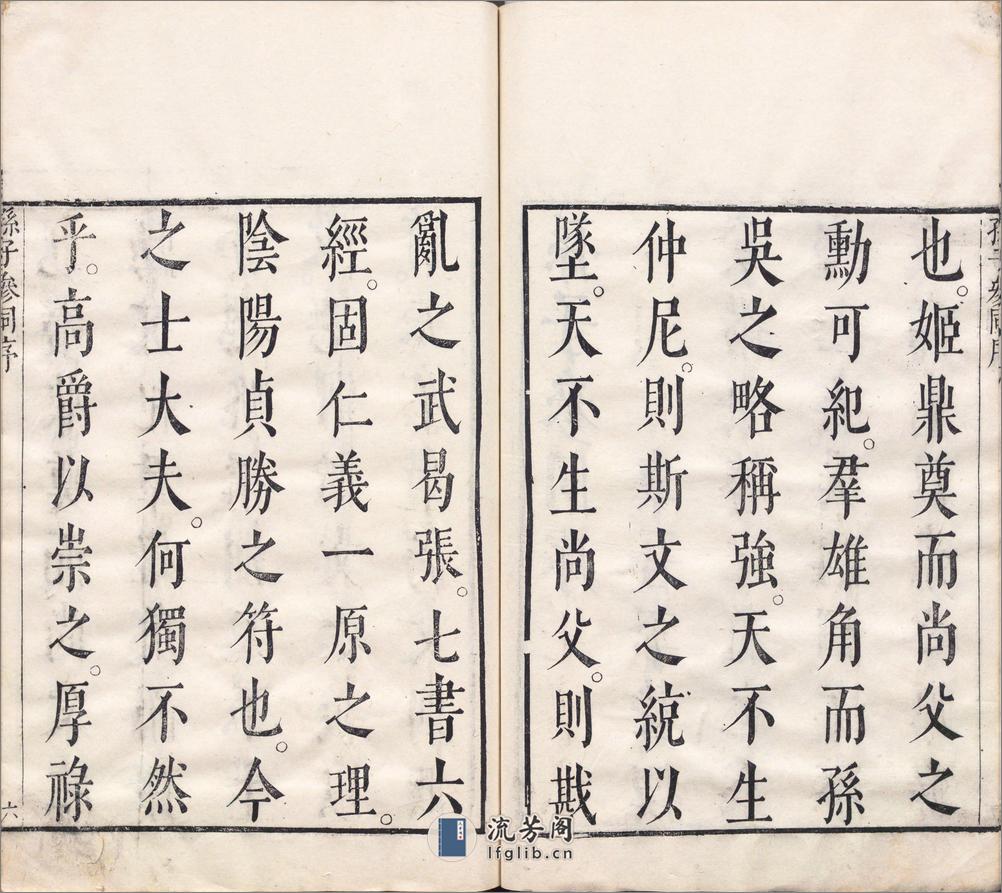 也。姬鼎奠而尚父之
勳可紀。羣雄角而孫
吳之略稱強。天不生
仲尼。則斯文之統以
墜。天不生尚父。則戡
亂之武曷張。七書六
經。固仁義一原之理。
陰陽貞勝之符也。今
之士大夫。何獨不然
乎。高爵以崇之。厚祿
孫子參同序
六
流芳阁
lfglib.cn